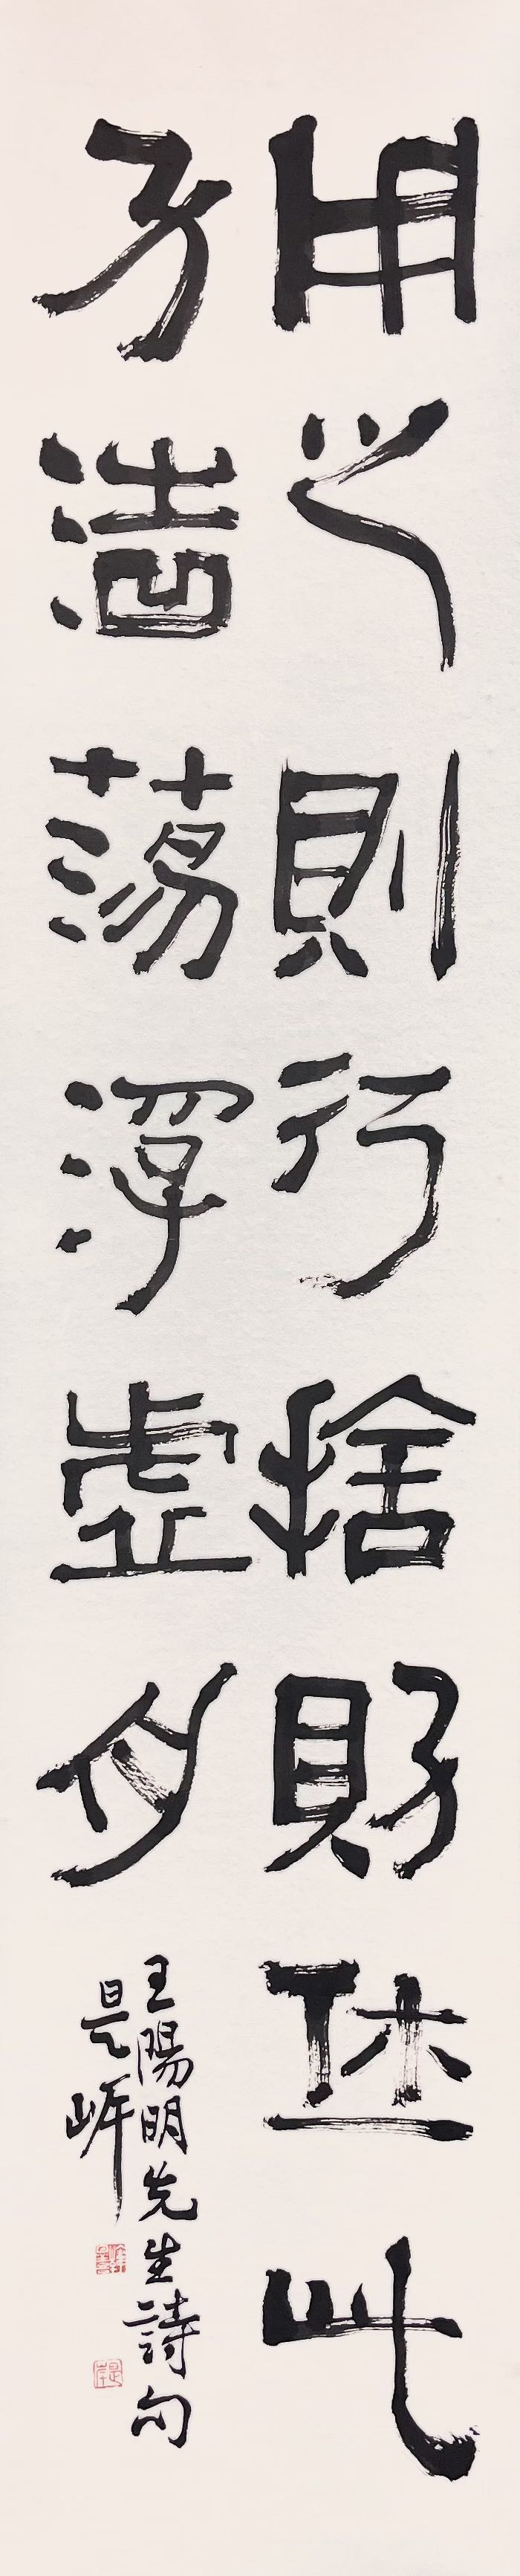 用之則行捨即休此
身浩蕩浮虛舟
王陽明先生詩句
是岸